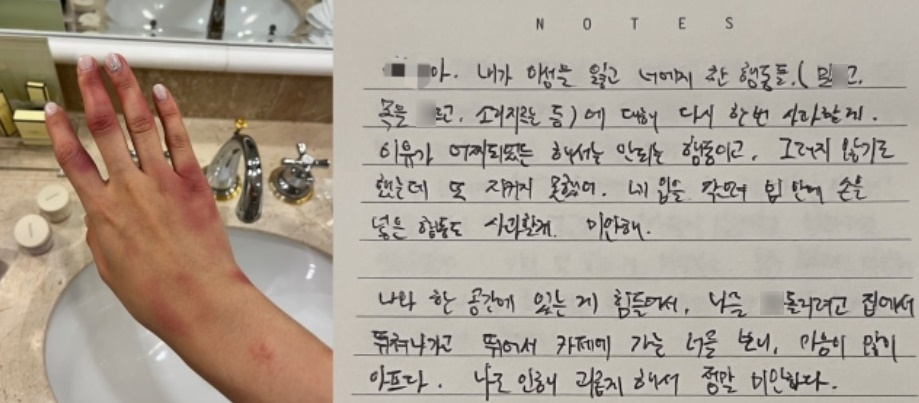 NOTES
아. 내가 이성을 잃고 너에게 한 행동들.( 밀 고.
목을 르고, 소리지르는 등)에 대해 다시 한번 사과할게.
이유가 어찌되었든 해서는 안되는 행동이고, 그러지 않기로
했는데 또 지키지 못했어. 네 입을 막으려 입 안에 손을
넣은 행동도 사과할게. 미안해.
나와 한 공간에 있는 게 힘들어서, 나를 돌리려고 집에서
뛰쳐나가고 뛰어서 카페에 가는 너를 보니, 마음이 많이
아프다. 나로 인해 괴롭게 해서 정말 미안하다.